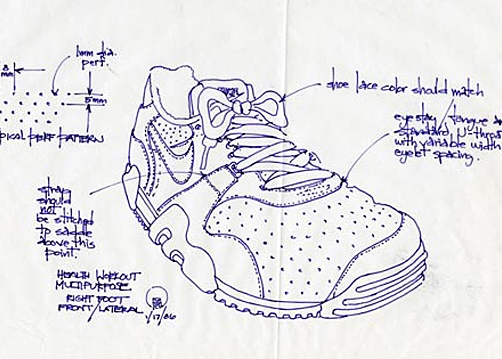 1mm dia.
perf.
3
mm
5mm
PICAL PERF PATTERN
shoe lace color should match
eyestay, tongue
standard U-throat
with variable width
eyelet spacing.
strap
should
not
be stitched
to saddle
above this
point.
HEALTH WORKOUT
MULTIPURPOSE
RIGHT FOOT
FRONT/LATERAL
1/17/86